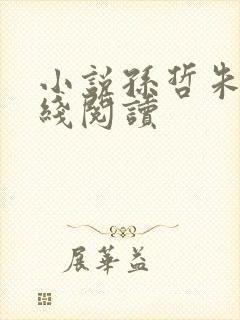 小説孫哲朱
綫閱讀
展華益